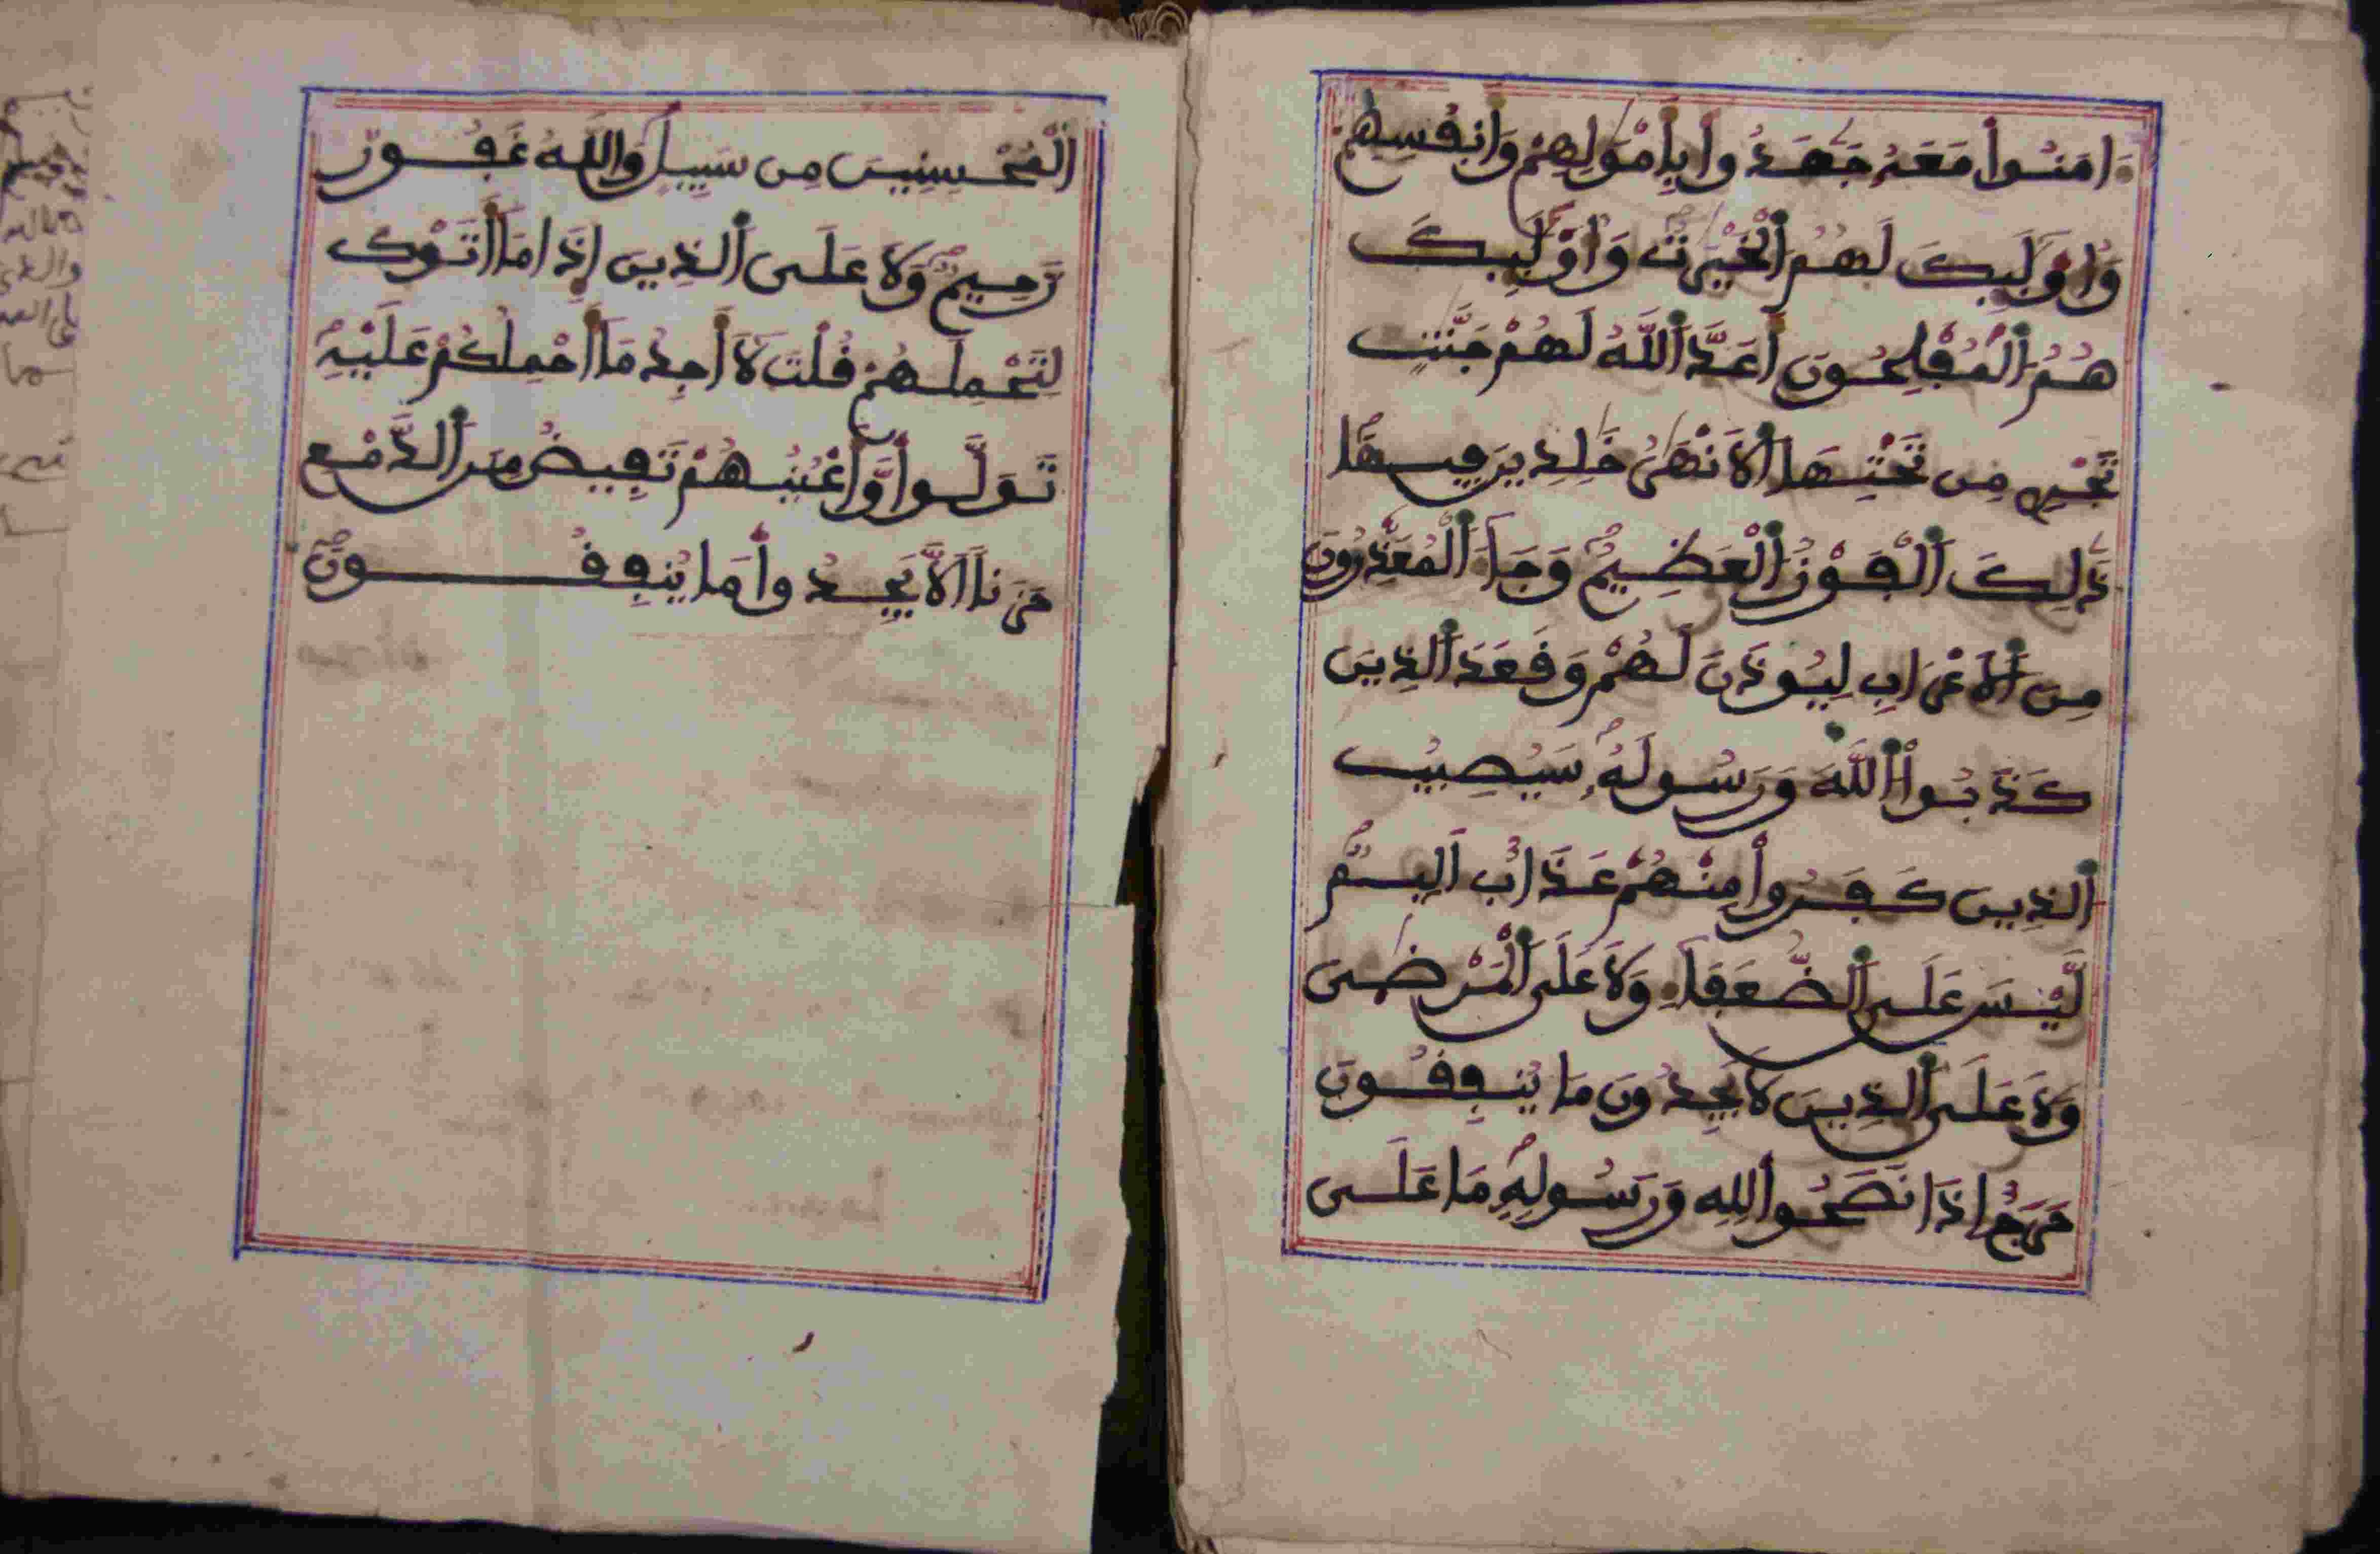 ءامَنُوا مَعَهُ جَهَدُوا بِأَمْوَلِهِمْ وَأَنفُسِهِمْ
وَأُوْلَٰئِكَ لَهُمُ الْخَيْرَٰتُ وَأُوْلَٰئِكَ
هُمُ الْمُفْلِحُونَ أَعَدَّ اللَّهُ لَهُمْ جَنَّٰتٍ
تَجْرِي مِن تَحْتِهَا الْأَنْهَٰرُ خَٰلِدِينَ فِيهَا
ذَٰلِكَ الْفَوْزُ الْعَظِيمُ وَجَاءَ الْمُعَذِّرُونَ
مِنَ الْأَعْرَابِ لِيُوذَنَ لَهُمْ وَقَعَدَ الذِينَ
كَذَبُوا اللَّهَ وَرَسُولَهُ سَيُصِيبُ
الذِينَ كَفَرُوا مِنْهُمْ عَذَابٌ اَلِيمٌ
لَّيْسَ عَلَى الضُّعَفَاءِ وَلَا عَلَى الْمَرْضَىٰ
وَلَا عَلَى الذِينَ لَا يَجِدُونَ مَا يُنفِقُونَ
حَرَجٌ إِذَا نَصَحُوا لِلهِ وَرَسُولِهِ مَا عَلَى
الْمُحْسِنِينَ مِن سَبِيلٍ وَاللَّهُ غَفُورٌ
رَّحِيمٌ وَلَا عَلَى الذِينَ إِذَا مَا أَتَوْكَ
لِتَحْمِلَهُمْ قُلْتَ لَا أَجِدُ مَا أَحْمِلُكُمْ عَلَيْهِ
تَوَلَّوا وَّأَعْيُنُهُمْ تَفِيضُ مِنَ الدَّمْعِ
حَزَناً اَلَّا يَجِدُوا مَا يُنفِقُونَ